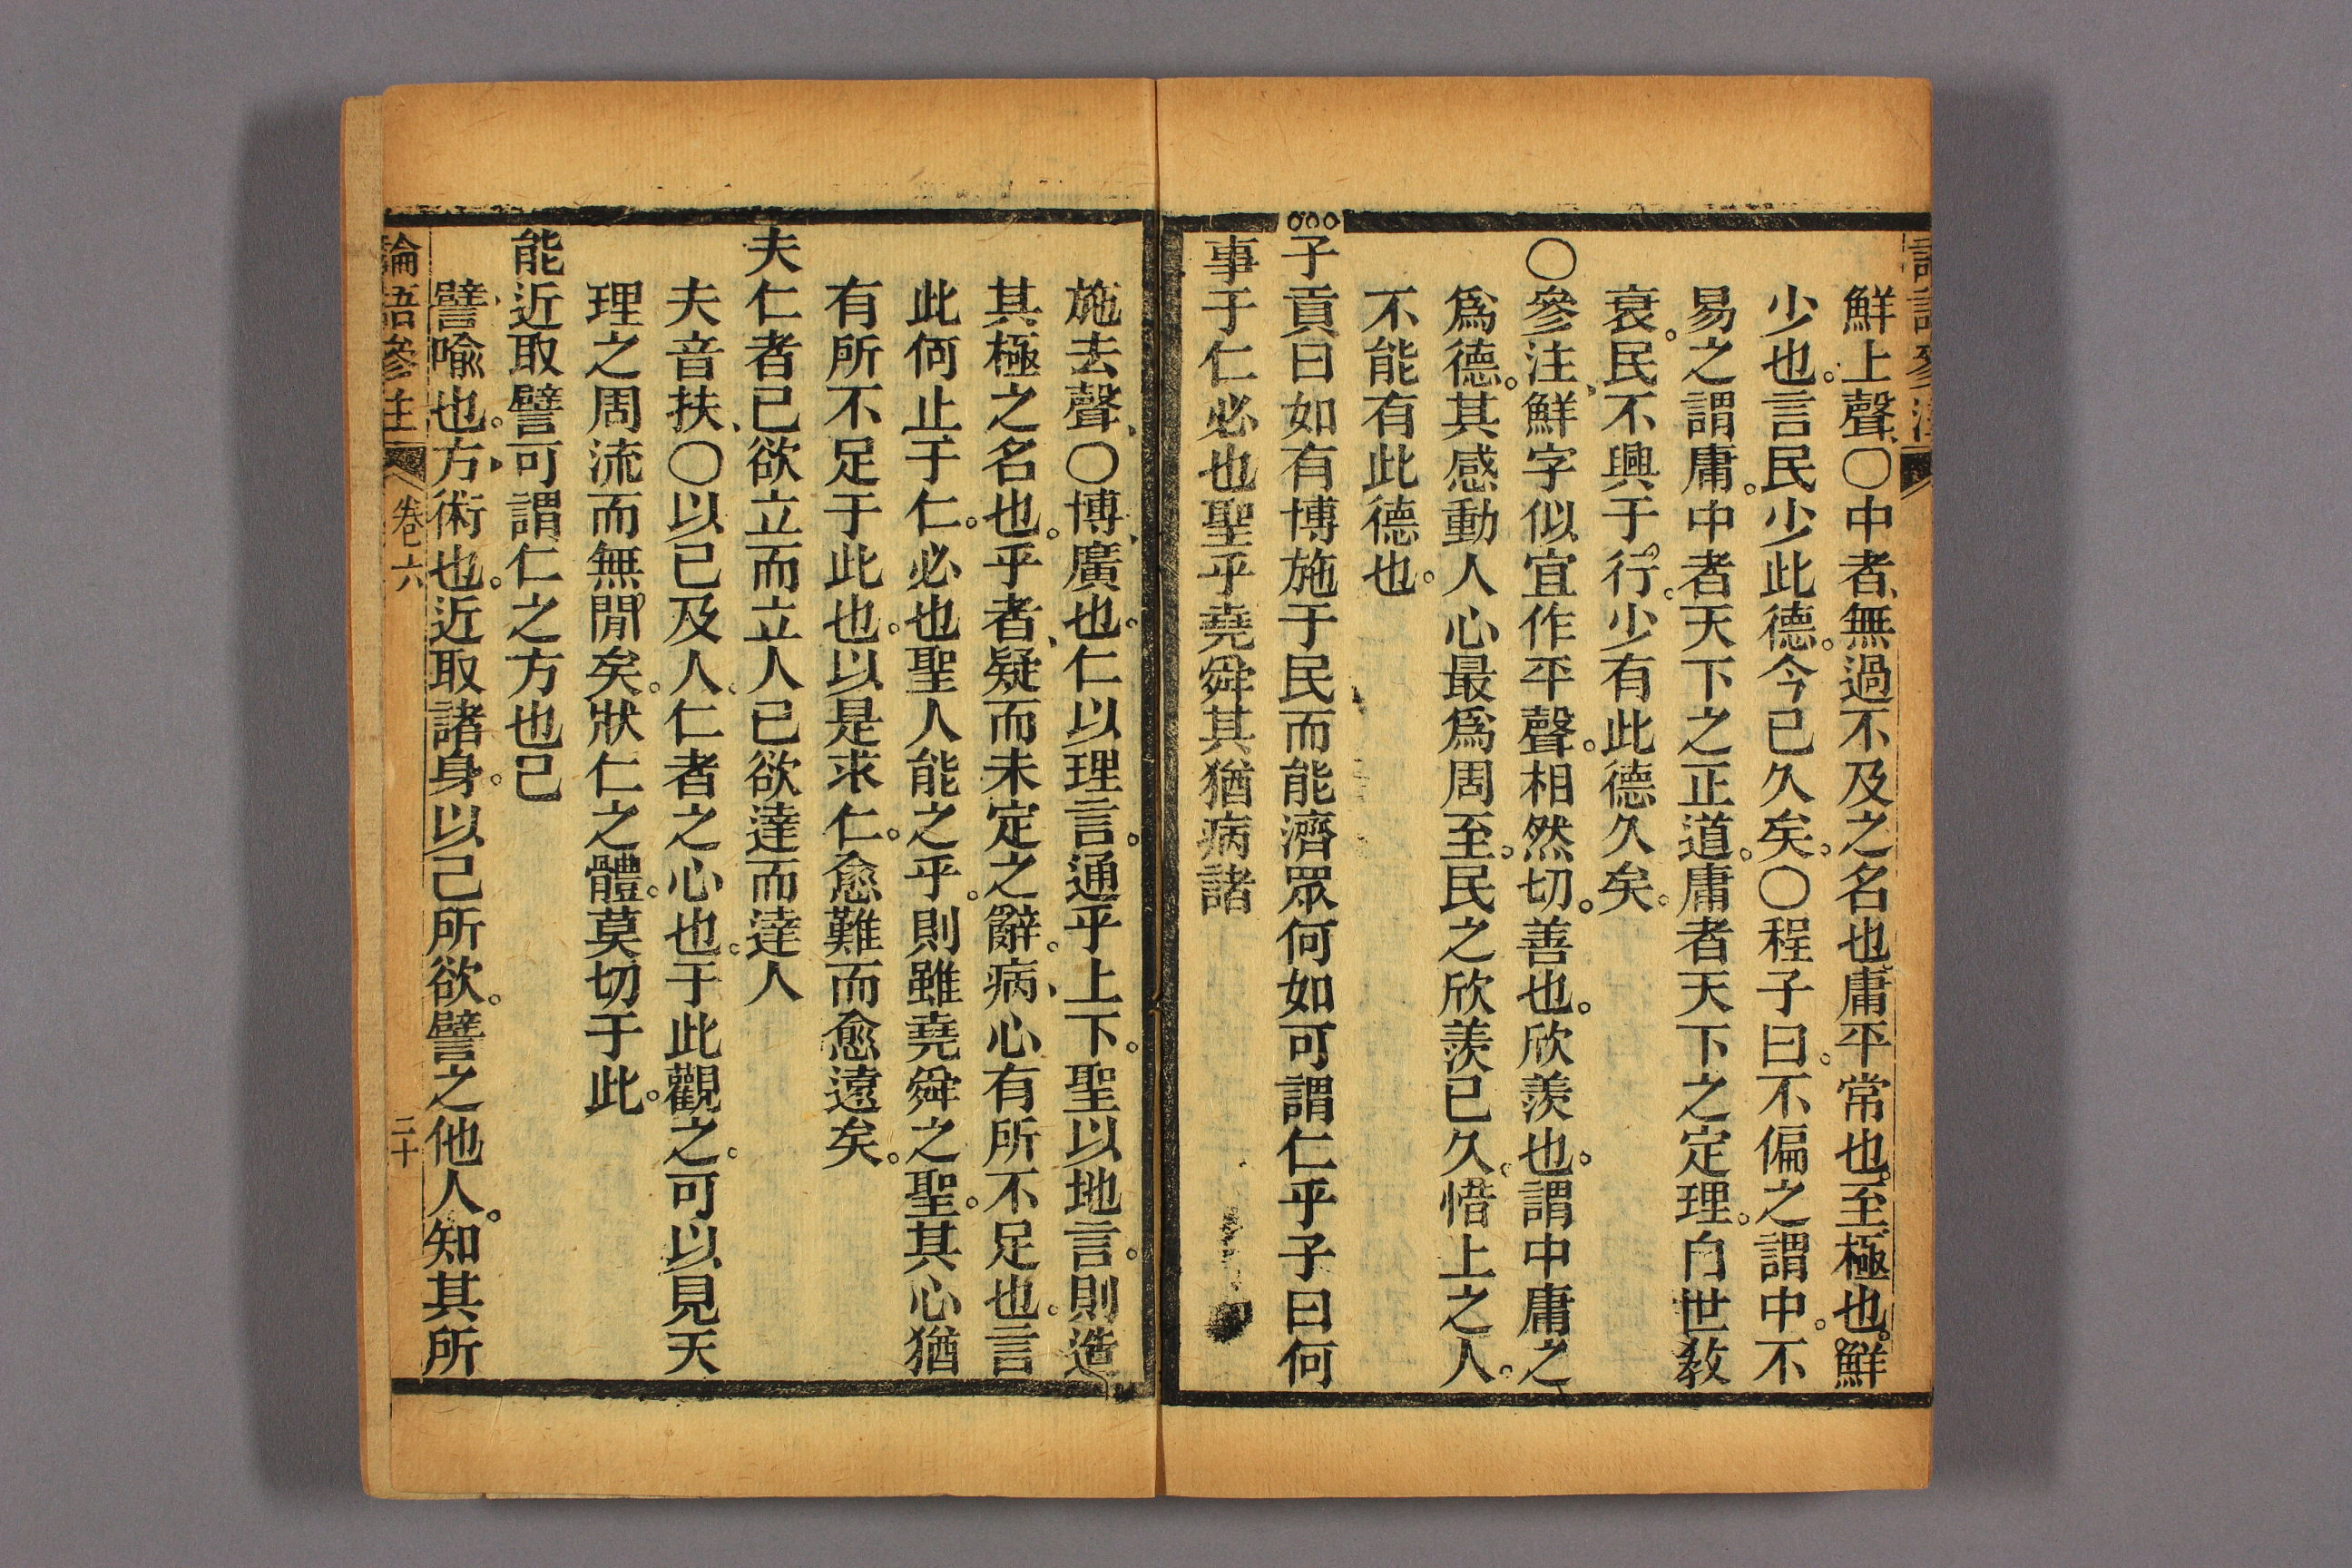 鮮上聲、〇中者、無過不及之名也。庸平常也。至極也。鮮
少也。言民少此德。今已久矣。〇程子曰。不偏之謂中。不
易之謂庸。中者天下之正道。庸者天下之定理。自世教
衰。民不興于行。少有此德久矣。
〇參注、鮮字似宜作平聲。相然切。善也。欣羨也。謂中庸之
爲德。其感動人心最爲周至。民之欣羨已久。惜上之人。
不能有此德也。
子貢曰如有博施于民而能濟眾何如可謂仁乎子曰何
事于仁必也聖乎堯舜其猶病諸
施去聲、〇博、廣也。仁以理言。通乎上下。聖以地言。則造
其極之名也。乎者、疑而未定之辭。病、心有所不足也。言
此何止于仁。必也聖人能之乎。則雖堯舜之聖。其心猶
有所不足于此也。以是求仁。愈難而愈遠矣。
夫仁者已欲立而立人已欲達而達人
夫音扶、〇以已及人。仁者之心也。于此觀之。可以見天
理之周流而無閒矣。狀仁之體。莫切于此。
能近取譬可謂仁之方也已
譬、喻也。方、術也。近取諸身。以己所欲。譬之他人。知其所
論語參注 卷六 二十